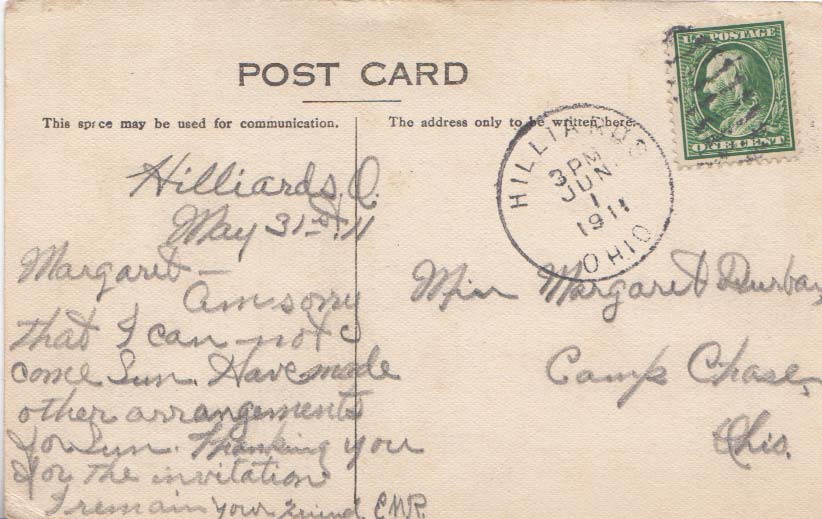 POST CARD
This space may be used for communication.
The address only to be written here.
U.S. POSTAGE
ONE CENT
HILLIARDS
3 PM
JUN
1
1911
OHIO
Hilliards, O.
May 31st, 11
Margaret—
Am sorry
that I can not
come Sun. Have made
other arrangements
for Sun. Thanking you
for the invitation
I remain your friend E.M.R.
Miss Margaret Durban
Camp Chase,
Ohio.